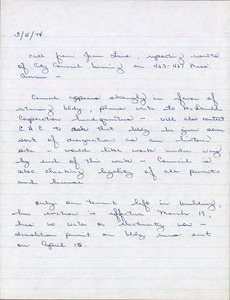 3/6/74
Call from Jane Lund, reporting results
of City Council hearing on 463-467 Mass
Avenue -
Council appears strongly in favor of
retaining bldg, please write to McDonald
Corporation headquarters - will also contact
C.H.C to ask that bldg be given some
sort of designation as an historic
site - would like work under way
by end of this week - Council is
also checking legality of all permits
and license.
Only one tenant left in building,
her eviction is effective March 19,
has no water or electricity now -
demolition permit on bldg runs out
on April 18.